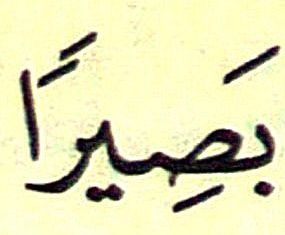 بَصِيرًا